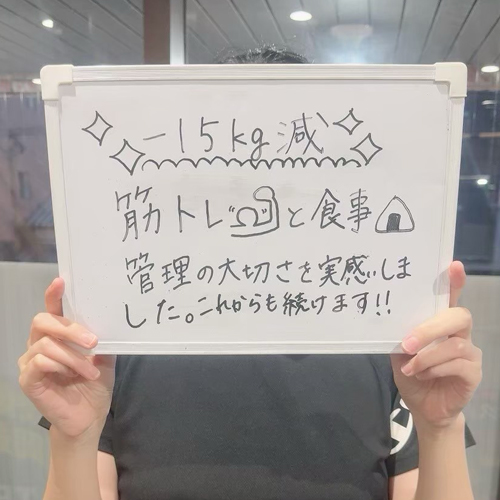 -15kg減
筋トレと食事
管理の大切さを実感しま
した。これからも続けます!!